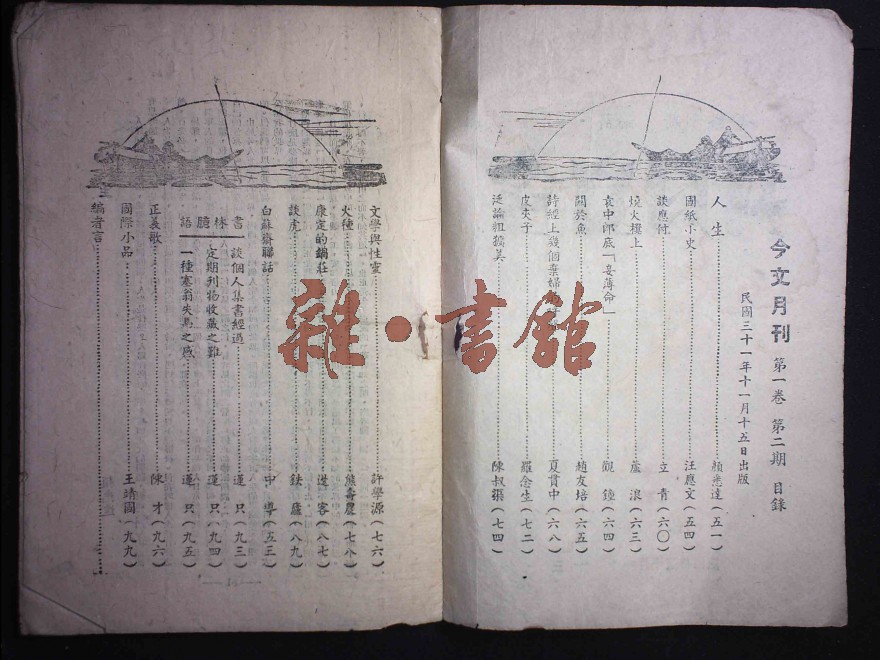 今文月刊 第一卷 第二期 目錄
民國三十一年十一月十五日出版
人生 顏悉達(五一)
團紙小史 汪應文(五四)
談應付 立青(六〇)
燒火櫈上 盧浪(六三)
袁中郎底「妾薄命」 觀鐘(六四)
關於魚 趙友培(六五)
詩經上幾個棄婦 夏貫中(六八)
皮夾子 羅念生(七二)
泛論粗獷美 陳叔渠(七四)
文學與性靈 許學源(七六)
火種 熊壽農(七八)
康定的鍋莊 客(八七)
談虎 鈇廬(八九)
白蘇齋聯話 中導(五三)
書林臆語
談個人集書經過 蘧只(九三)
定期刊物收藏之難 蘧只(九四)
一種塞翁失馬之感 蘧只(九五)
正義歌 陳才(九六)
國際小品 王靖國(九九)
編者言
雜·書館